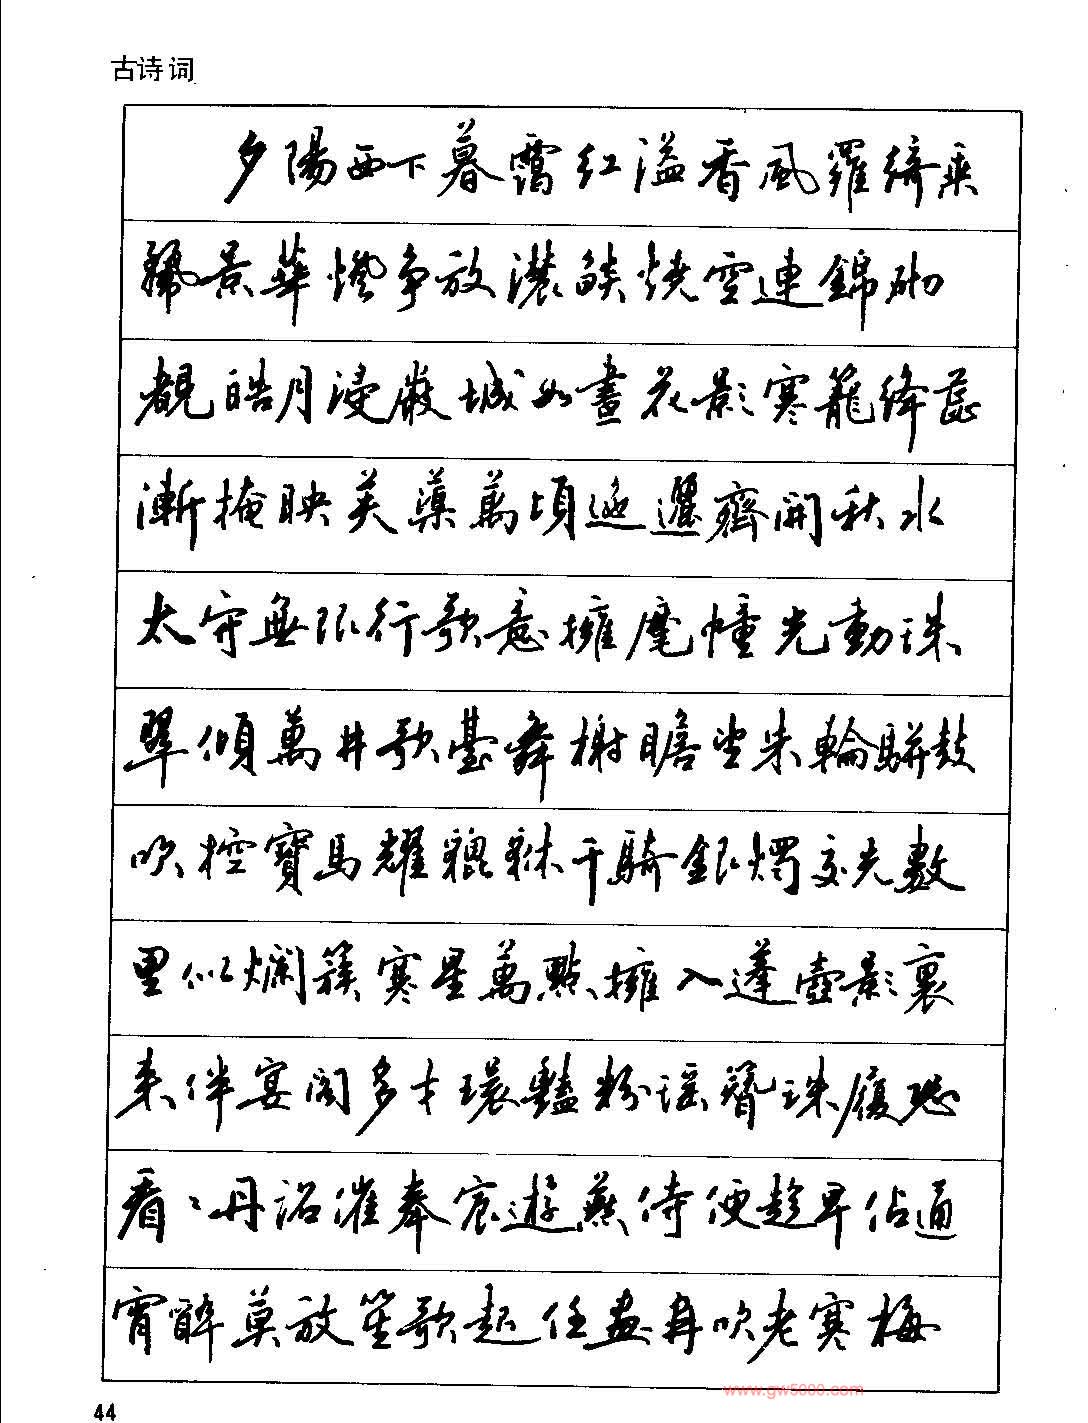 古诗词
夕陽西下暮靄紅溢香風羅綺乘
麗景華燈争放濃燄燒空連錦砌
覩皓月浸嚴城如畫花影寒籠絳蕊
漸掩映芙蕖萬頃迤邐齊開秋水
太守無限行歌意擁麾幢光動珠
翠傾萬井歌臺舞榭瞻望朱輪駢鼓
吹控寶馬耀貔貅千騎銀燭交光數
里似爛簇寒星萬點擁入蓬壺影裏
来伴宴閣多才環豔粉瑶簪珠履恐
看〻丹詔催奉宸遊燕侍便趨早佔通
宵醉莫放笙歌起任畫角吹老寒梅
www.gw5000.com
44